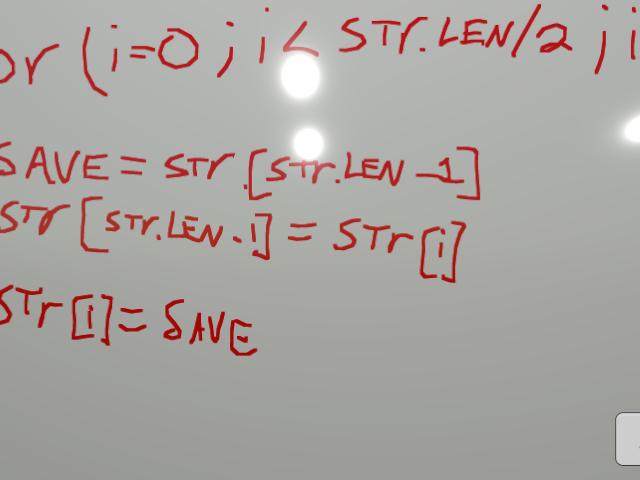 or (i=0; i< STr.LEN/2; i
SAVE = STr.[STr.LEN-1]
STr[STr.LEN-i] = STr[i]
STr[i] = SAVE